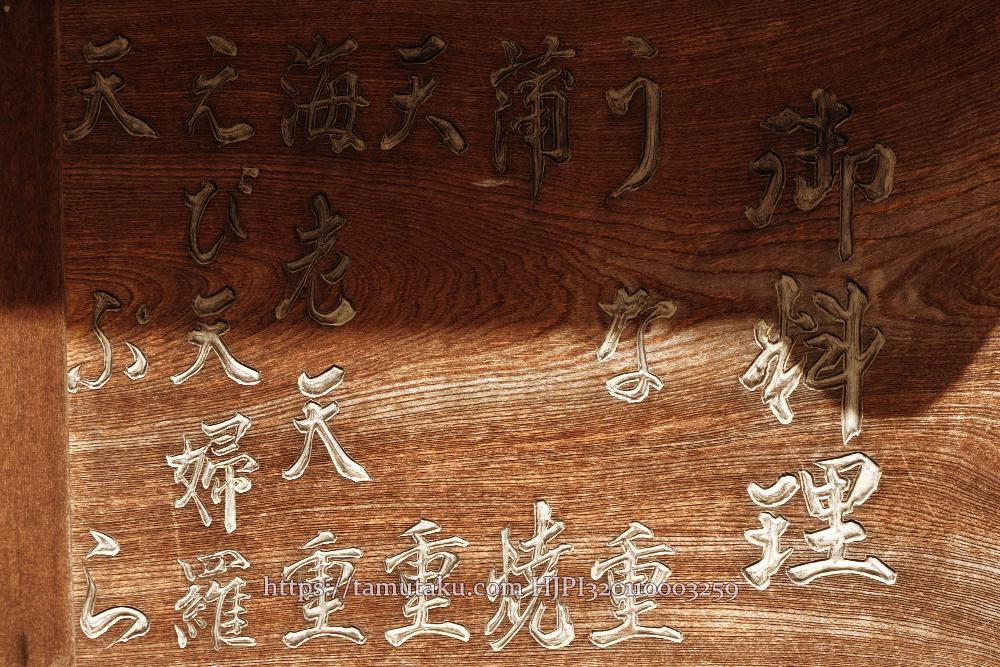 御料理
うな重
蒲焼
天重
海老天重
えび天婦羅
天ぷら
https://tamutaku.com HJPI320110003259